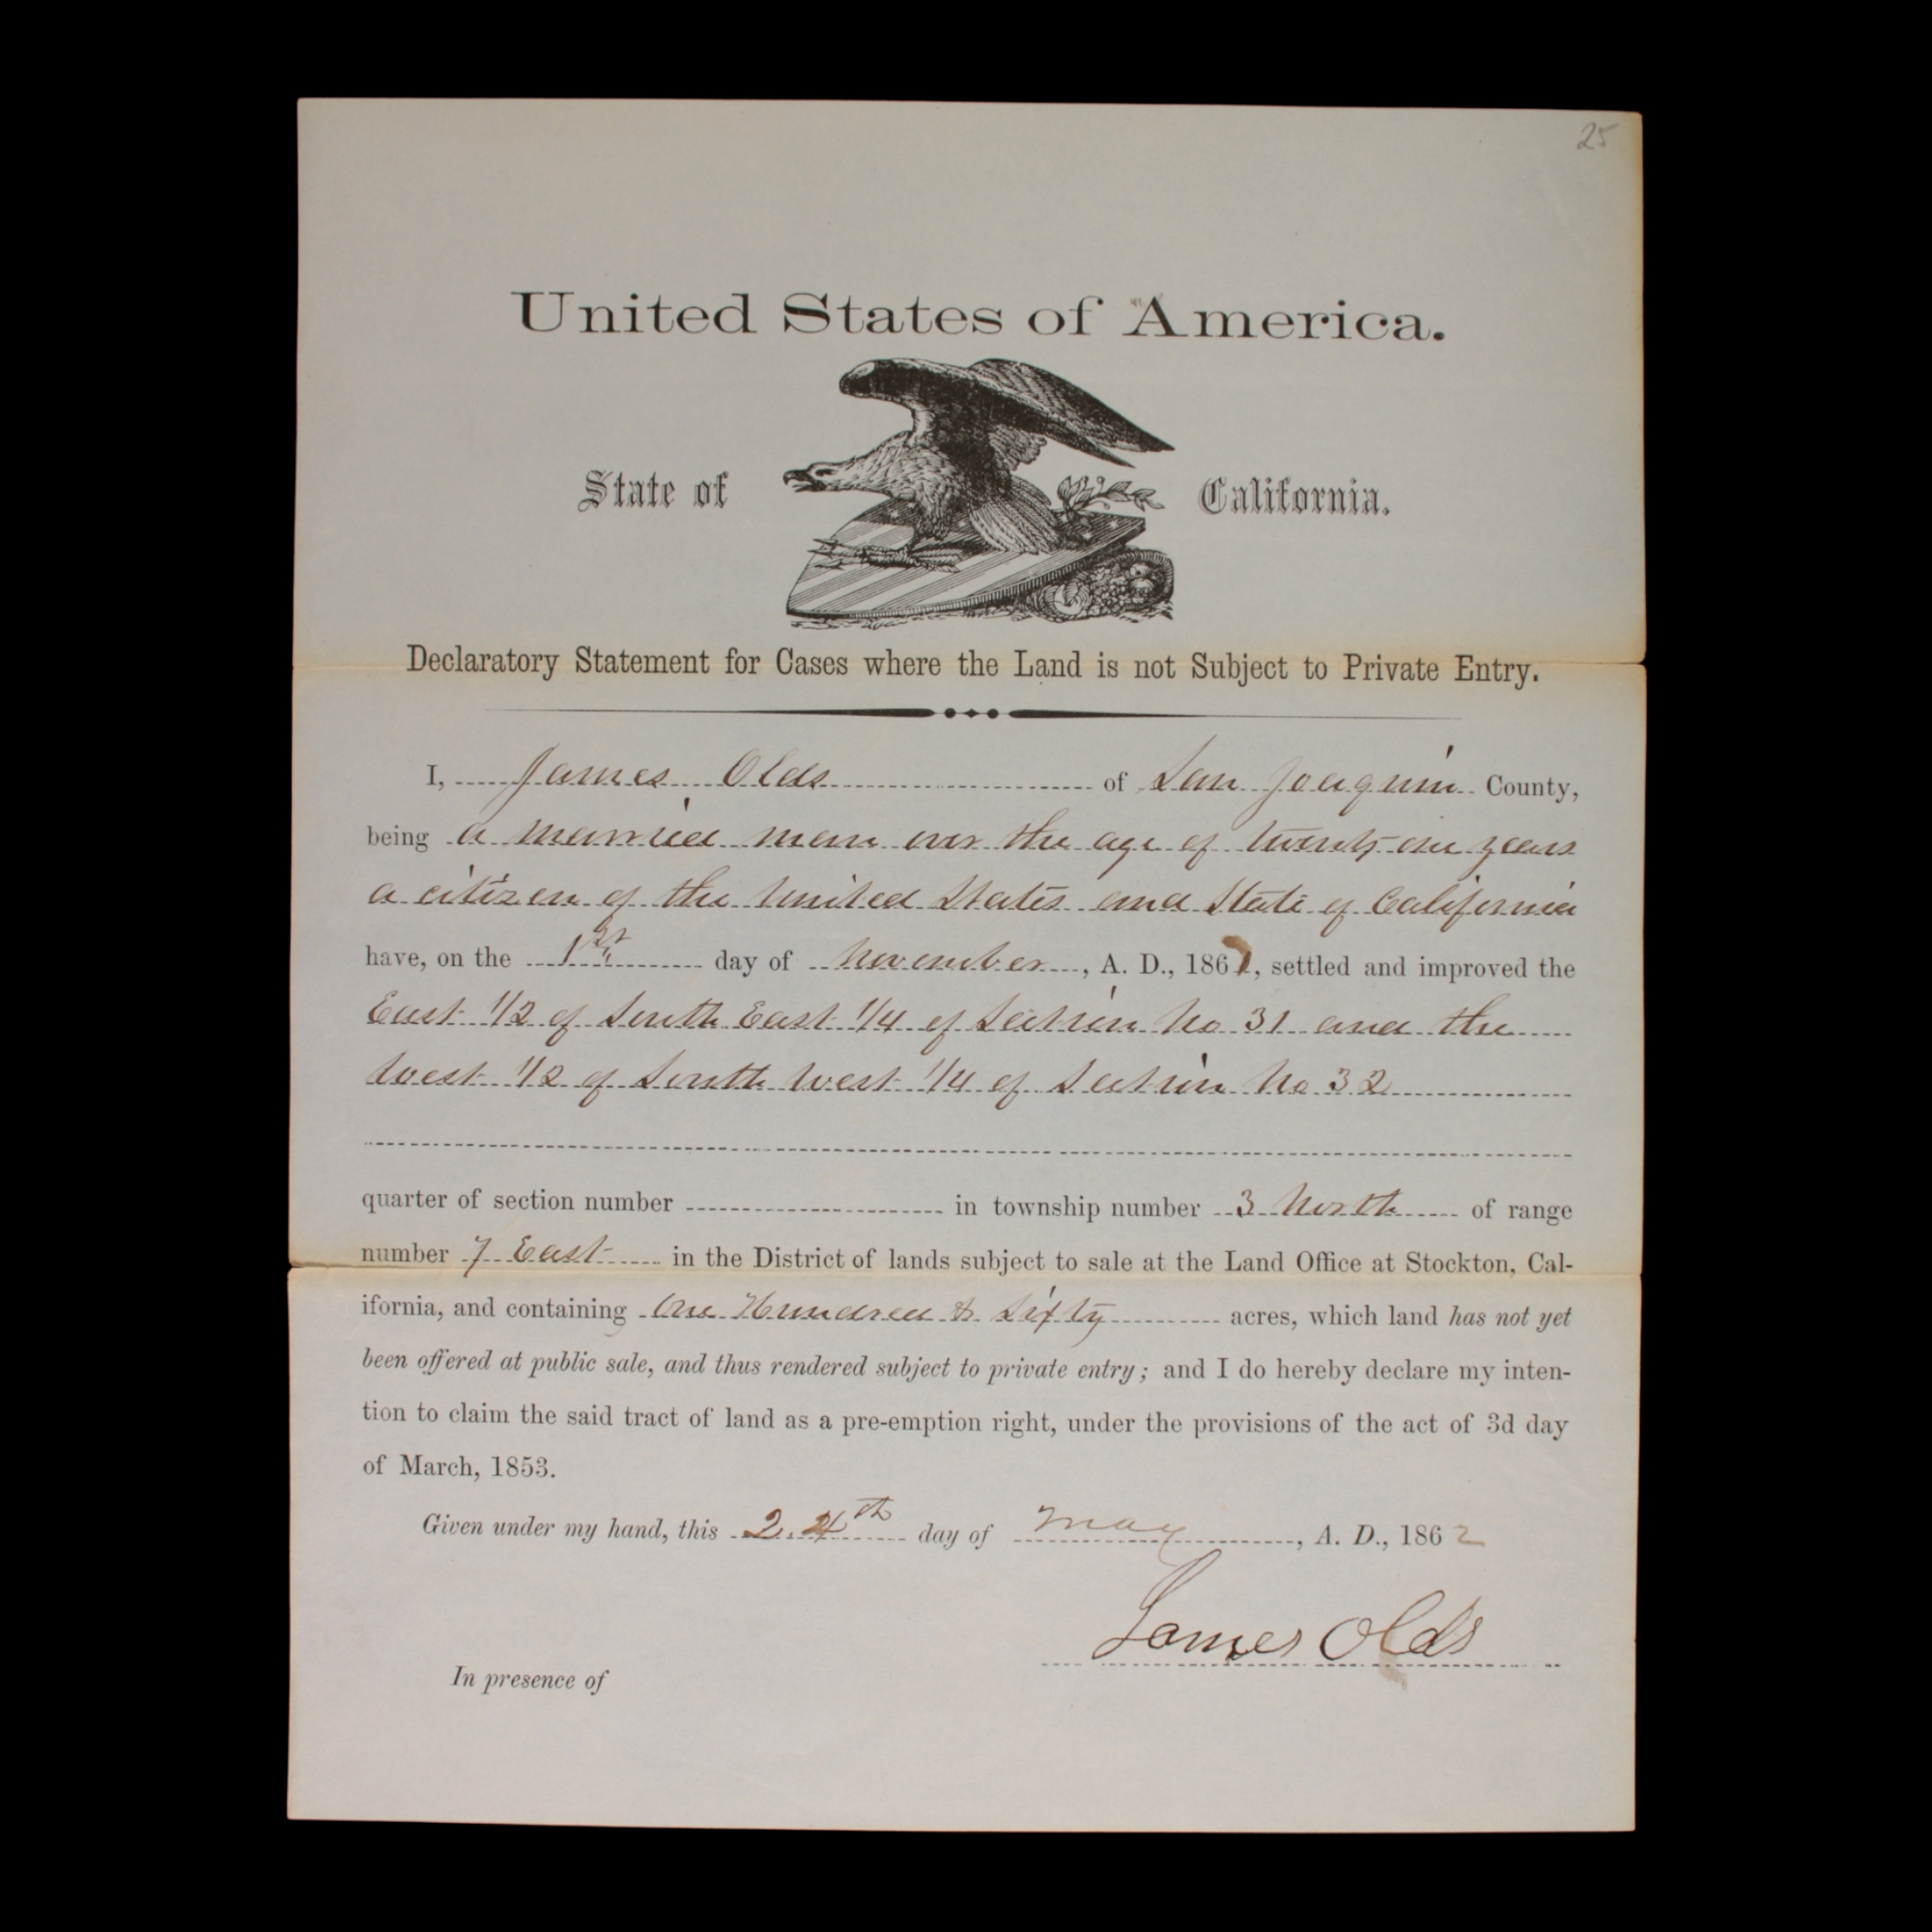 25
United States of America.
State of California.
Declaratory Statement for Cases where the Land is not Subject to Private Entry.
I, James Olds of San Joaquin County,
being a married man over the age of twenty-one years
a citizen of the United States and State of California
have, on the 1st day of November, A. D., 186, settled and improved the
East 1/2 of South East 1/4 of Section No 31 and the
West 1/2 of South West 1/4 of Section No 32
quarter of section number in township number 3 North of range
number 7 East in the District of lands subject to sale at the Land Office at Stockton, Cal-
ifornia, and containing One Hundred & Sixty acres, which land has not yet
been offered at public sale, and thus rendered subject to private entry; and I do hereby declare my inten-
tion to claim the said tract of land as a pre-emption right, under the provisions of the act of 3d day
of March, 1853.
Given under my hand, this 24th day of May, A. D., 1862
James Olds
In presence of